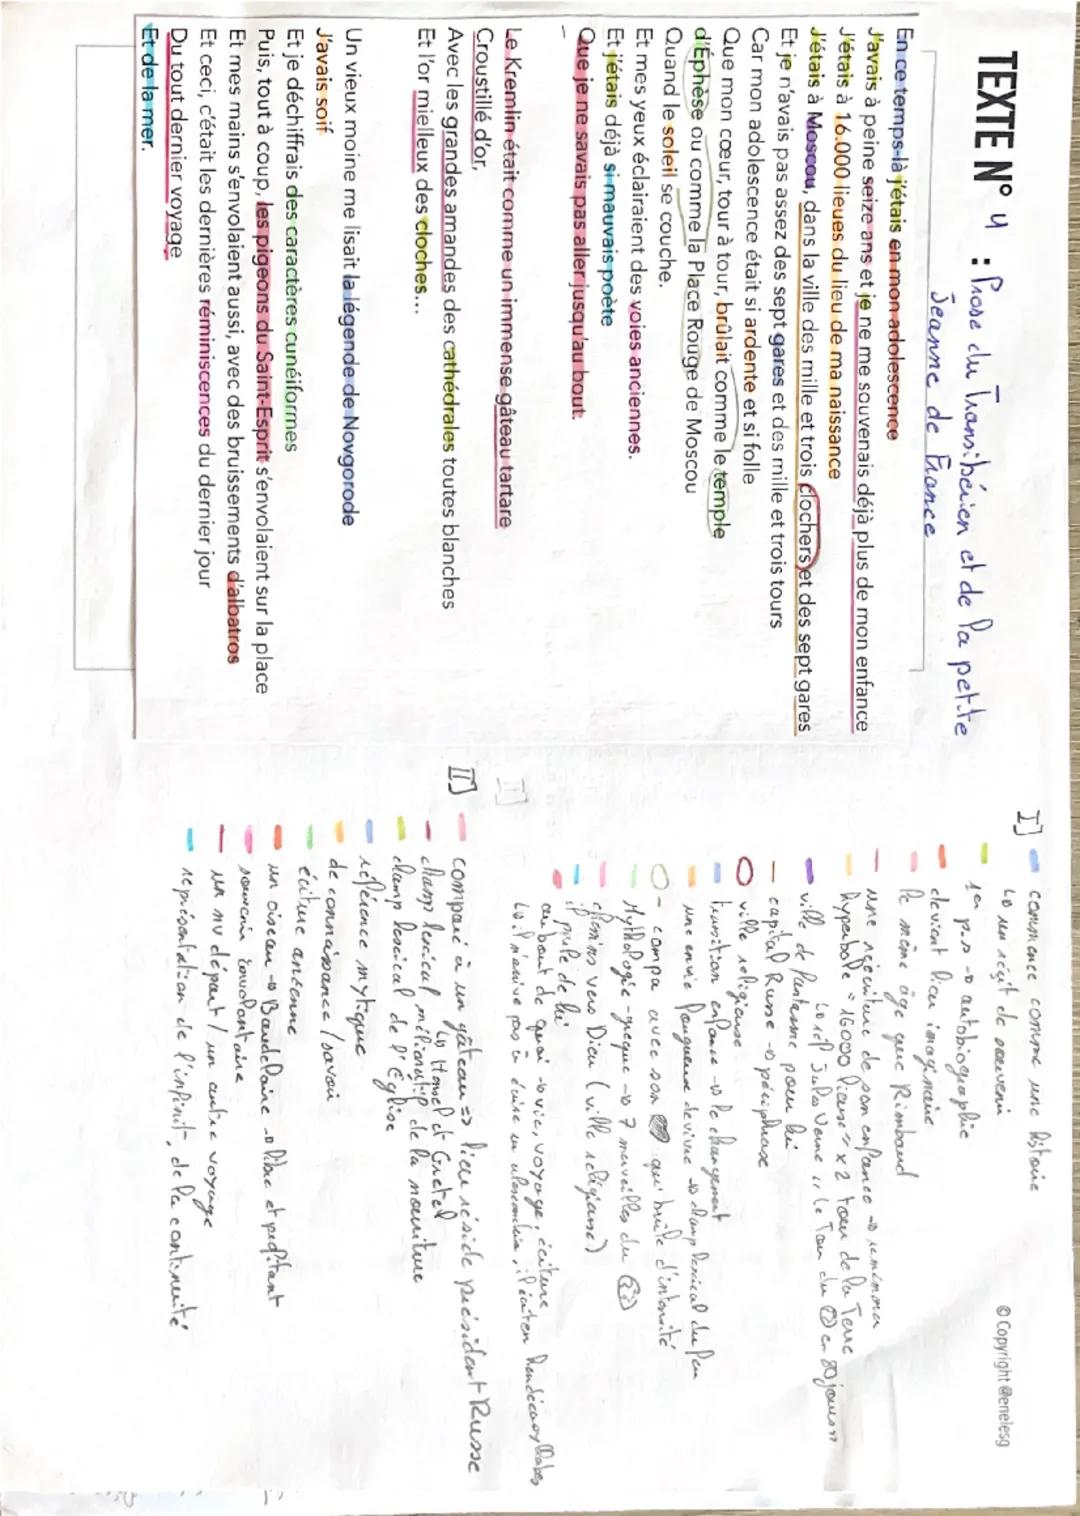 TEXTE N° 4 : Prose du Transsibérien et de la petite
Jeanne de France
En ce temps-là j'étais en mon adolescence
J'avais à peine seize ans et je ne me souvenais déjà plus de mon enfance
J'étais à 16.000 lieues du lieu de ma naissance
J'étais à Moscou, dans la ville des mille et trois clochers et des sept gares
Et je n'avais pas assez des sept gares et des mille et trois tours
Car mon adolescence était si ardente et si folle
Que mon cœur, tour à tour, brûlait comme le temple
d'Éphèse ou comme la Place Rouge de Moscou
Quand le soleil se couche.
Et mes yeux éclairaient des voies anciennes.
Et j'étais déjà si mauvais poète
Que je ne savais pas aller jusqu'au bout.
Le Kremlin était comme un immense gâteau tartare
Croustillé d'or,
Avec les grandes amandes des cathédrales toutes blanches
Et l'or mielleux des cloches...
Un vieux moine me lisait la légende de Novgorode
J'avais soif
Et je déchiffrais des caractères cunéiformes
Puis, tout à coup, les pigeons du Saint-Esprit s'envolaient sur la place
Et mes mains s'envolaient aussi, avec des bruissements d'albatros
Et ceci, c'était les dernières réminiscences du dernier jour
Du tout dernier voyage
Et de la mer.
© Copyright @enelesg
I] commence comme une histoire
↳ un récit de souvenir
1er p.s → autobiographie
devient lieu imaginaire
le même âge que Rimbaud
une réécriture de son enfance →
hyperbole "16000 lieues" x 2 tour de la Terre
↳ réf Jules Verne "le Tour du en 80 jours"
ville de fantasme pour lui
capital Russe → périphrase
ville religieuse
transition enfance → le changement
une envie fougueuse de vivre → champ lexical du feu
compa avec son qui brûle d'intensité
Mythologie grecque → 7 merveilles du
chemins vers Dieu (ville religieuse)
il parle de lui
au bout de quoi → vie, voyage, écriture
↳ il n'arrive pas à écrire en
II] comparé à un gâteau => lieu réside président Russe
↳ Hansel et Gretel
champ lexical mélioratif de la nourriture
champ lexical de l'Église
référence mytique
de connaissance / savoir
écriture ancienne
un oiseau → Baudelaire → libre et
souvenir involontaire
un nv départ / un autre voyage
représentation de l'infinit, de la continuité